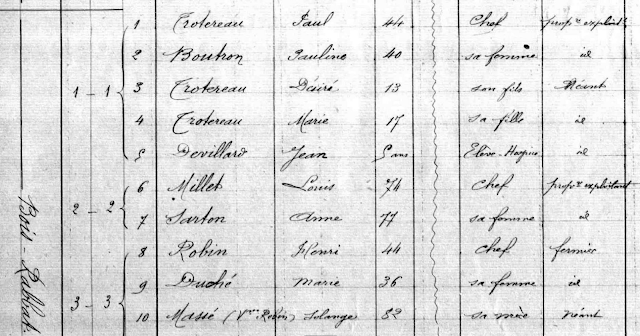 1 Trotereau Paul 44 Chef prop.re exploit.t
2 Boutron Pauline 40 sa femme id
1 - 1 3 Trotereau Désiré 13 son fils Néant
4 Trotereau Marie 17 sa fille id
5 Devillard Jean 5 ans Elève-Hospice id
6 Millet Louis 74 Chef prop.re exploitant
2 - 2 7 Sarton Anne 77 sa femme id
8 Robin Henri 44 Chef fermier
9 Duché Marie 36 sa femme id
3 - 3 10 Massé (Vve Robin) Solange 82 sa mère néant
Bois -